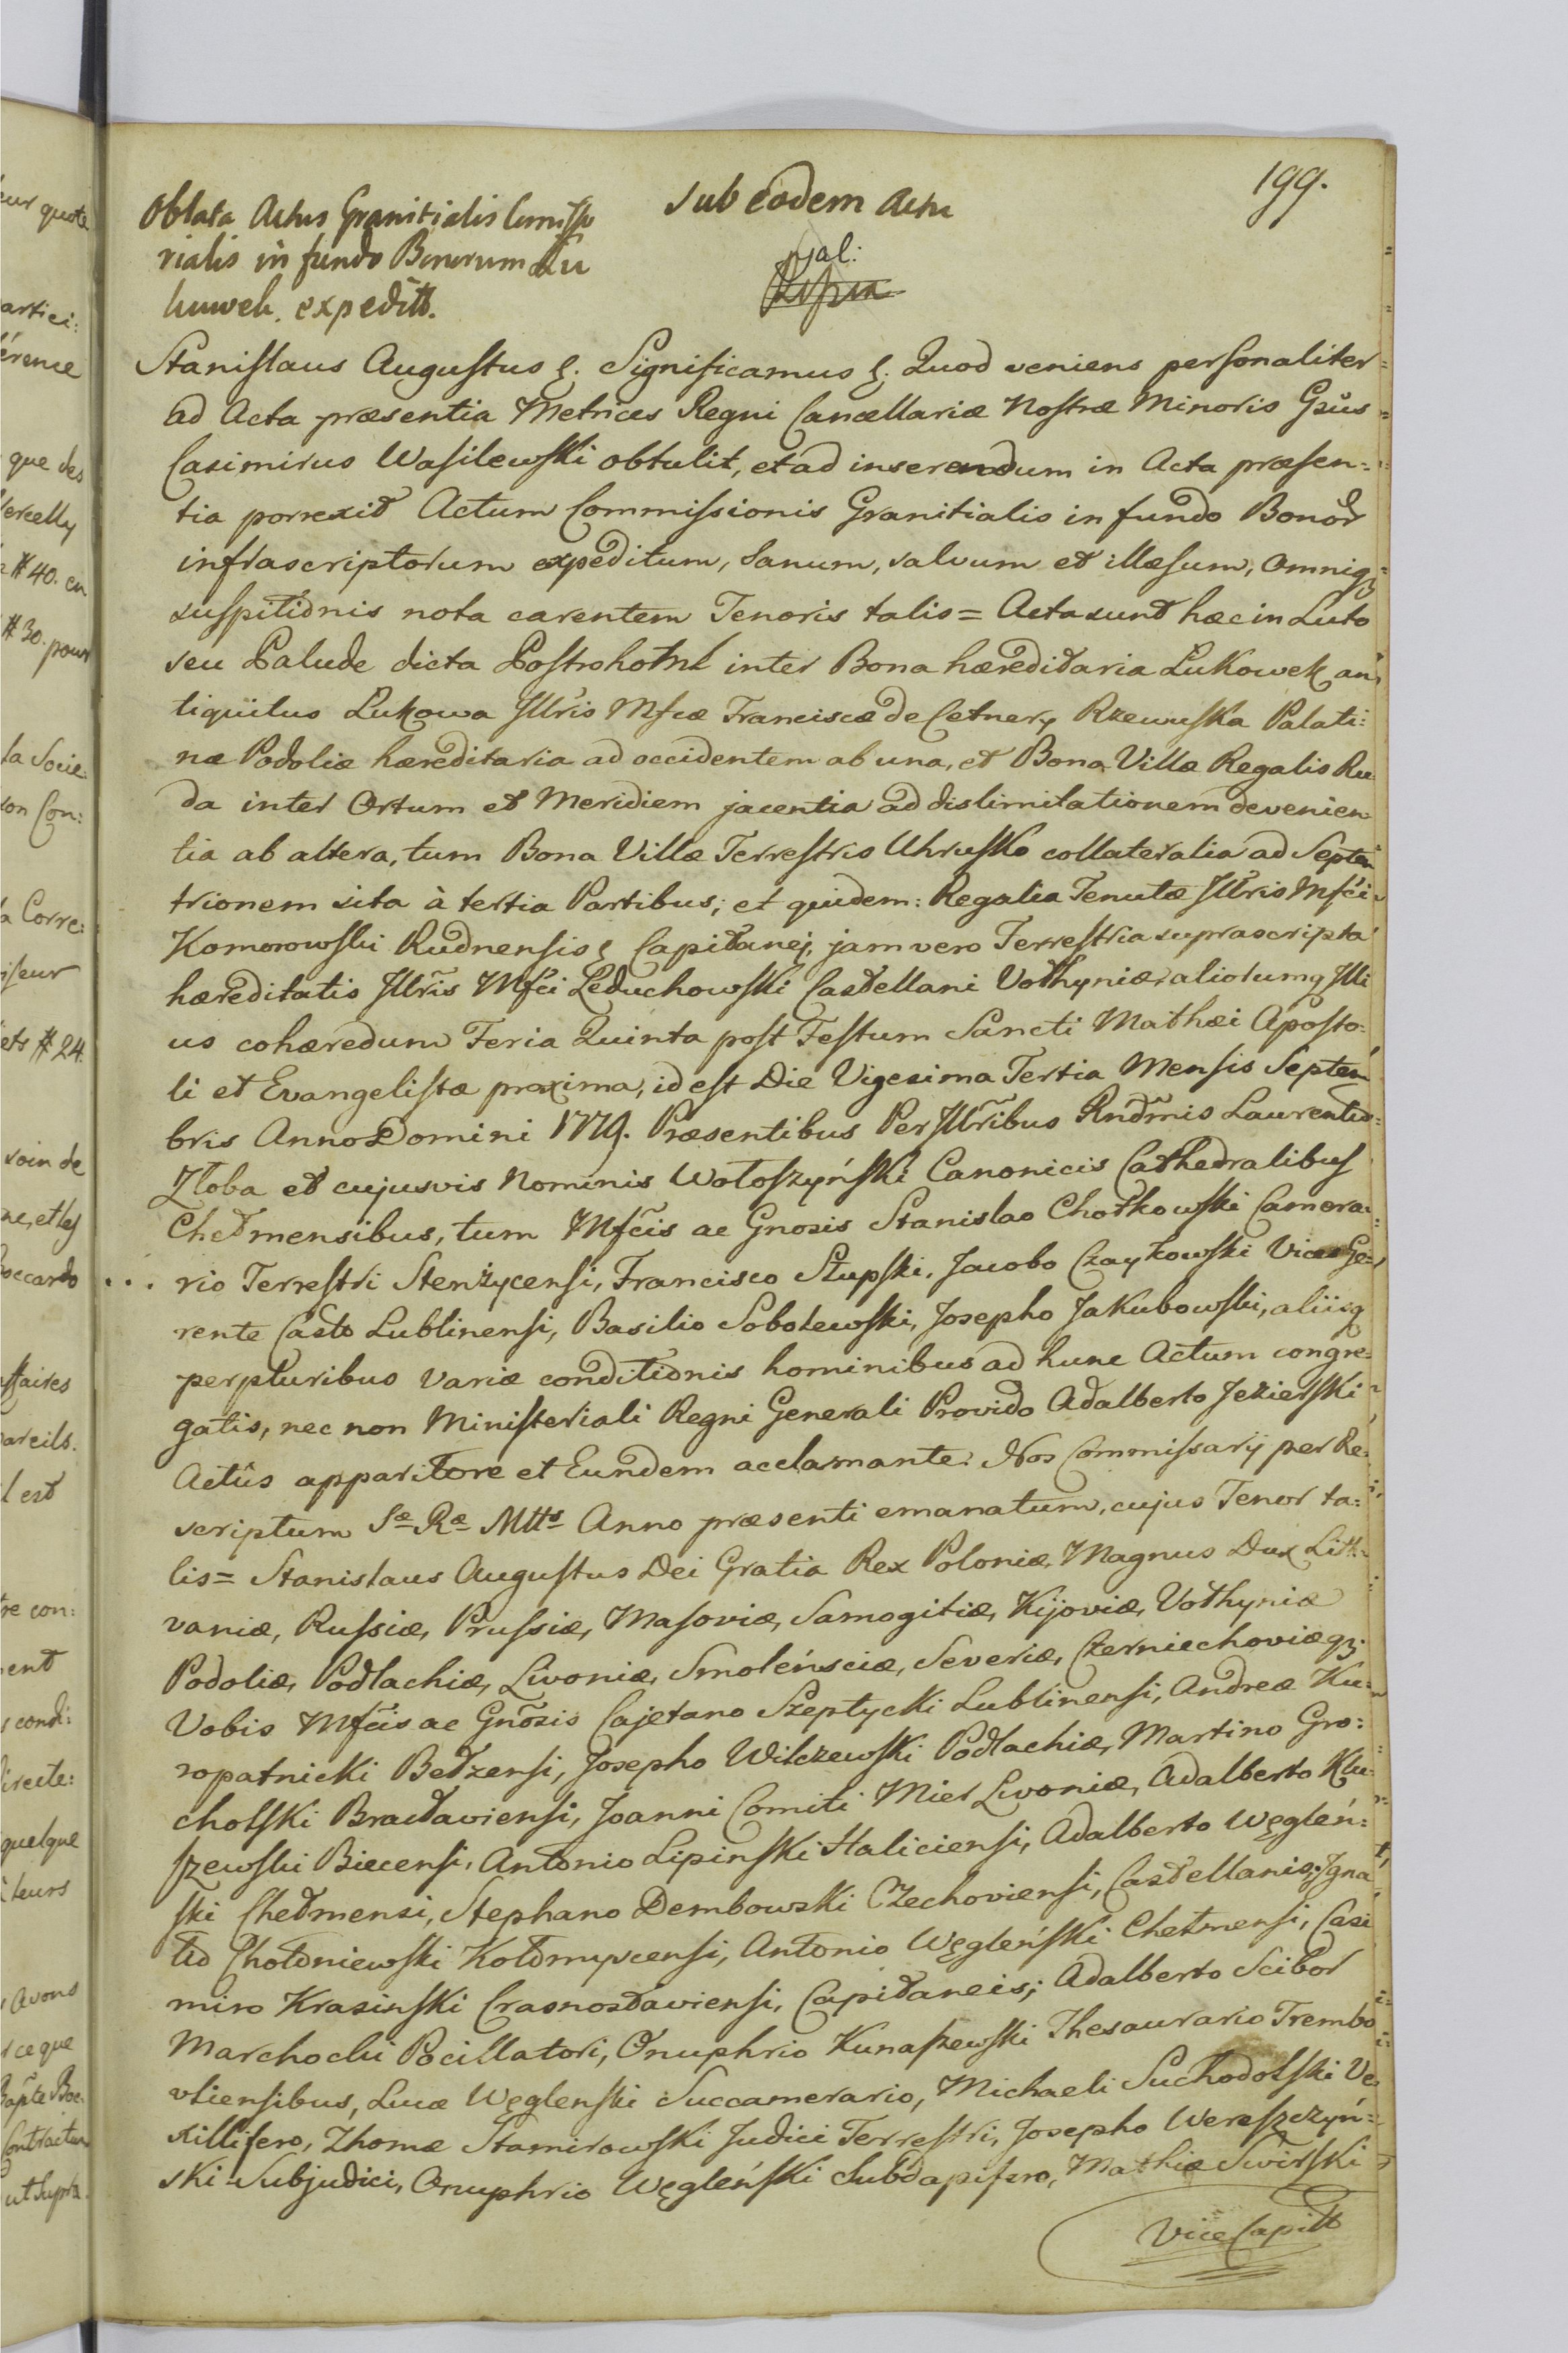 199.
sub eodem Actu
Oblata Actus Granitialis Comisso
rialis in fundo Bonorum Łu
kowek. expeditt.
Stanislaus Augustus &. Significamus &. Quod veniens personaliter
ad Acta præsentia Metrices Regni Cancellariæ Nostræ Minoris Gsus
Casimirus Wasilewski obtulit, et ad inserendum in Acta præsen=
tia porrexit Actum Commissionis Granitialis in fundo Bonor
infrascriptorum expeditum, Sanum, salvum et illæsum, omniq3
suspitionis nota carentem Tenoris talis = Acta sunt hæc in Luto
seu Palude dicta Postrohotnе inter Bona hæreditaria Łukowek an
tiquitus Lukowa Illris Mfcæ Franciscæ de Cetnery Rzewuska Palati:
næ Podoliæ hæreditaria ad occidentem ab una, et Bona Villæ Regalis Ru
da inter Ortum et Meridiem jacentia ad dislimitationem devenien
tia ab altera, tum Bona Villæ Terrestris Uhrusko collateralia ad Septen
trionem sita à tertia Partibus; et quidem: Regalia Tenutæ Illris Mfci
Komorowski Rudnensis & Capitanej, jam vero Terrestria suprascripta
hæreditatis Illris Mfci Leduchowski Castellani Vołhyniæ aliorumq Illi
us cohæredum Feria Quinta post Festum Sancti Mathæi Aposto:
li et Evangelistæ proxima, id est Die Vigesima Tertia Mensis Septem
bris Anno Domini 1779. Præsentibus Per Illribus Rndmis Laurentio
Złoba et cujusvis Nominis Wołoszyński Canonicis Cathedralibus
Chełmensibus, tum Mfcis ac Gnosis Stanislao Chotkowski Camera:
rio Terrestri Stenżycensi, Francisco Słupski, Jacobo Czaykowski Vices Ge=
rente Casto Lublinensi, Basilio Sobolewski, Josepho Jakubowski, aliisq
perpluribus variæ conditionis hominibus ad hunc Actum congre=
gatis, nec non Ministeriali Regni Generali Provido Adalberto Jezierski
Actûs apparitore et Eundem acclamante. Nos Commissarij per Re
scriptum Sæ Ræ Mtts Anno præsenti emanatum, cujus Tenor ta:
lis = Stanislaus Augustus Dei Gratia Rex Poloniæ, Magnus Dux Lith
vaniæ, Russiæ, Prussiæ, Masoviæ, Samogitiæ, Kijoviæ, Vołhyniæ
Podoliæ, Podlachiæ, Livoniæ, Smolénsciæ, Severiæ, Czerniechoviæq3.
Vobis Mfcis ac Gnosis Cajetano Szeptycki Lublinensi, Andreæ Ku=
ropatnicki Bełzensi, Josepho Wilczewski Podlachiæ, Martino Gro:
cholski Bracłaviensi, Joanni Comiti Mier Livoniæ, Adalberto Klu:
szewski Biecensi, Antonio Lipinski Haliciensi, Adalberto Węgleń:
ski Chełmensi, Stephano Dembowski Czechoviensi, Castellanis; Igna
tio Chołoniewski Kołomycensi, Antonio Węgleński Chełmensi, Casi
miro Krasinski Crasnostaviensi, Capitaneis; Adalberto Scibor
Marchocki Pocillatori, Onuphrio Kunaszewski Thesaurario Trembo
vliensibus, Lucæ Węglenski Succamerario, Michaeli Suchodolski Ve
xillifero, Thomæ Stamirowski Judici Terrestri, Josepho Wereszczyń=
ski Subjudici, Onuphrio Węgleński Subdapifero, Mathiæ Swirski
Vice Capitt